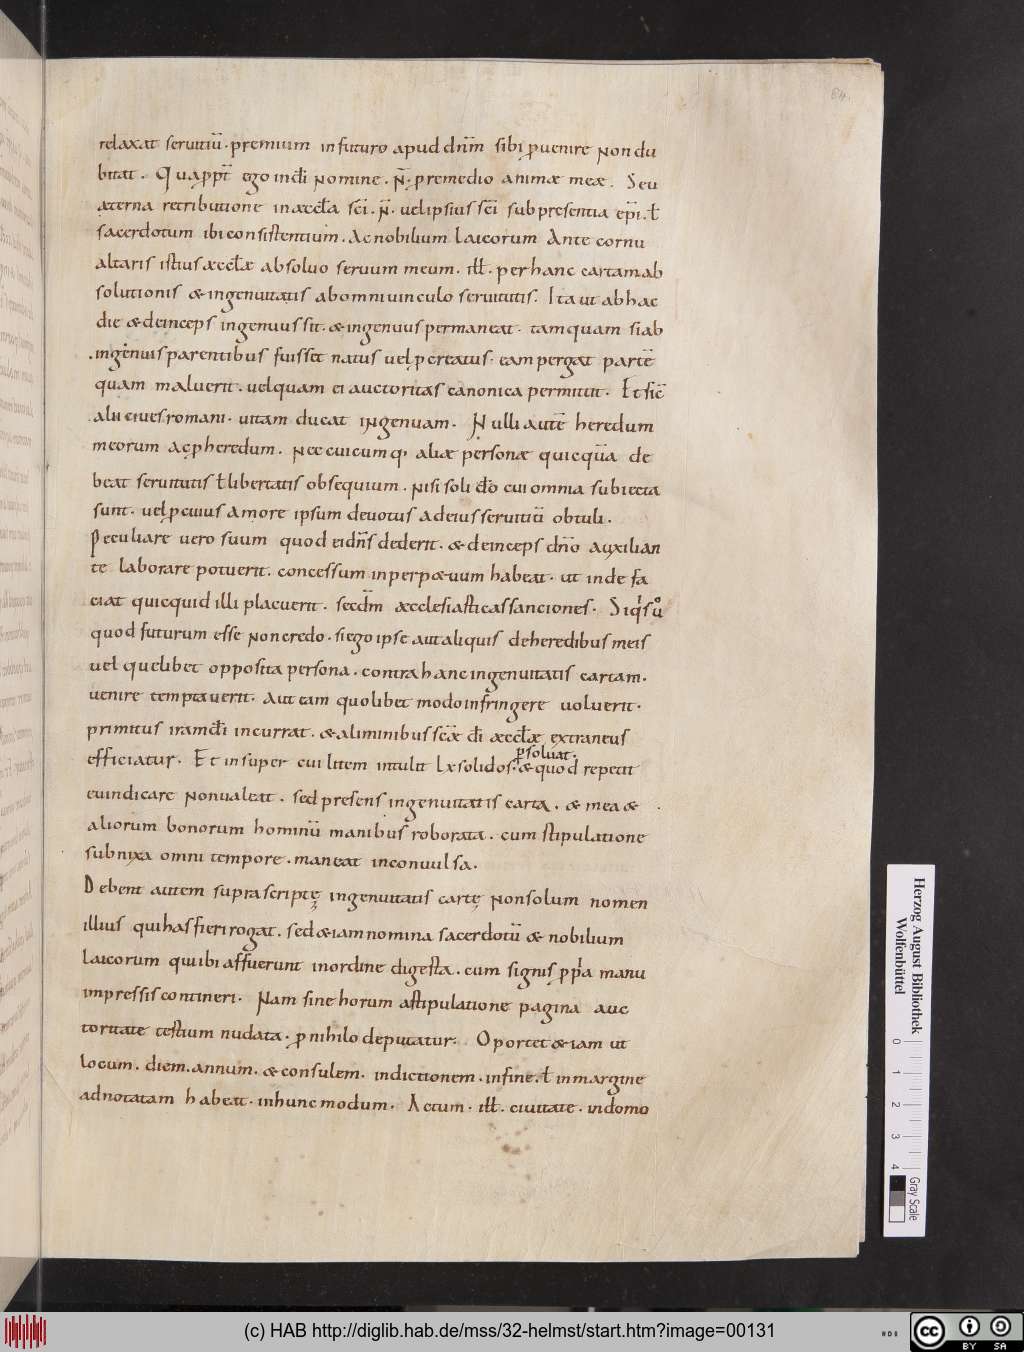 64.
relaxat seruitiū. premium infuturo apud dn̄m sibi ꝓuenire non du
bitat. Quapp̄t ego indi nomine. N̄. premedio animæ meæ. Seu
æterna retributione inæccła sc̄i. N̄. uelipsius sc̄i subpresentia ep̄i. ł
sacerdotum ibi consistentium. Ac nobilium laicorum Ante cornu
altaris istius æccłæ absoluo seruum meum. iłł. per hanc cartam ab
solutionis &ingenuitatis abomniuinculo seruitutis. Ita ut ab hac
die &deinceps ingenuus sit. &ingenuus permaneat. tamquam siab
ingenuis parentibus fuisset natus uel ꝓcreatus. eam pergat partē
quam maluerit. uelquam ei auctoritas canonica permittit. Et sic̄
alii ciues romani. uitam ducat ingenuam. Nulli autē heredum
meorum ac ꝓheredum. nec cuicumq aliæ personæ quicquā de
beat seruitutis ł libertatis obsequium. nisi soli dō cui omnia subiecta
sunt. uel ꝓcuius amore ipsum deuotus adeius seruitiū obtuli.
Peculiare uero suum quod ei dn̄s dederit. &deinceps dn̄o auxilian
te laborare potuerit. concessum inperpœuum habeat. ut inde fa
ciat quicquid illi placuerit. secdm̄ æcclesiasticas sanciones. Siq̇ṡ ů
quod futurum esse non credo. si ego ipse aut aliquis deheredibus meis
uel quelibet opposita persona. contra hanc ingenuitatis cartam.
uenire temptauerit. Aut eam quolibet modo infringere uoluerit.
primitus iram di incurrat. &aliminibus sc̄æ di æccłæ extraneus
ꝓsoluat.
efficiatur. Et insuper cui litem intulit Lx solidos. &quod repetit
euindicare nonualeat. sed presens ingenuitatis carta. & mea &
aliorum bonorum hominū manibus roborata. cum stipulatione
subnixa omni tempore. maneat inconuulsa.
Debent autem suprascriptę ingenuitatis cartę nonsolum nomen
illius qui has fieri rogat. sed &iam nomina sacerdotū & nobilium
laicorum qui ibi affuerunt inordine digesta. cum signis ꝓp̍a manu
impressis contineri. Nam sine horum astipulatione pagina auc
toritate testium nudata. ꝓ nihilo deputatur. Oportet &iam ut
locum. diem. annum. & consulem. indictionem. infine. ł inmargine
adnotatam habeat. inhunc modum. Actum. iłł. ciuitate. indomo
Herzog August Bibliothek
Wolfenbüttel
0 1 2 3 4
Gray Scale
(c) HAB http://diglib.hab.de/mss/32-helmst/start.htm?image=00131
cc BY SA